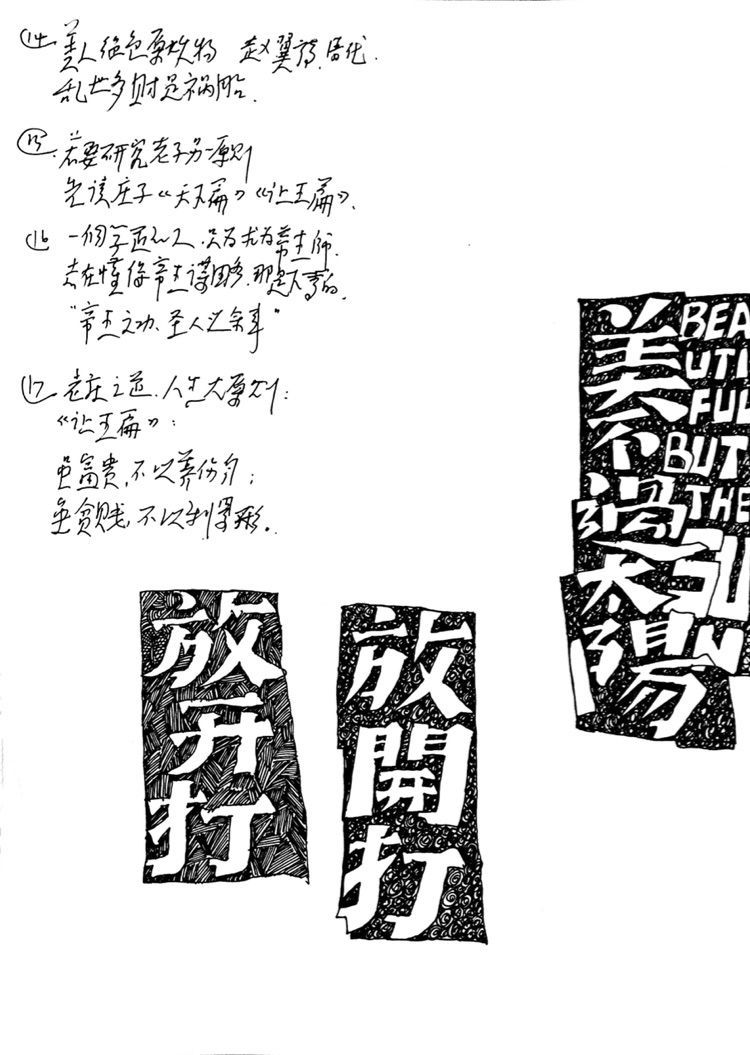 14. 美人绝色原妖物 赵翼诗、唐代.
乱世多财是祸胎.
15. 若要研究老子另一原则
先读庄子《天下篇》《让王篇》.
16 一个学道的人、只为尤为帝王师.
志在懂得帝王谋略.那是不言的.
“帝王之功、圣人之余事”
17. 老庄之道.人生大原则:
《让王篇》:
虽富贵,不以养伤身;
虽贫贱,不以利累形。
美不過太陽
BEA
UTI
FUL
BUT
THE
SU
N
放开打
放開打